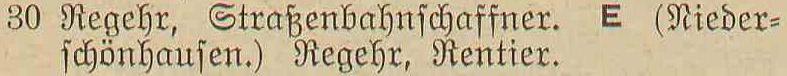 30 Regehr, Straßenbahnschaffner. E (Nieder=
schönhausen.) Regehr, Rentier.